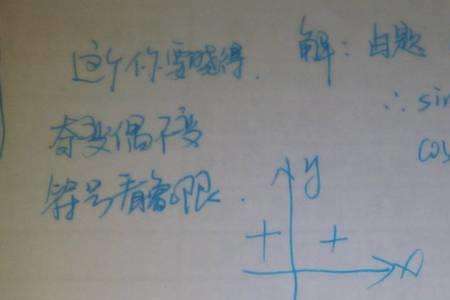 这个你要晓得.
奇变偶不变
符号看象限.
解：由题
∴ sin
cos
y
+ +
x